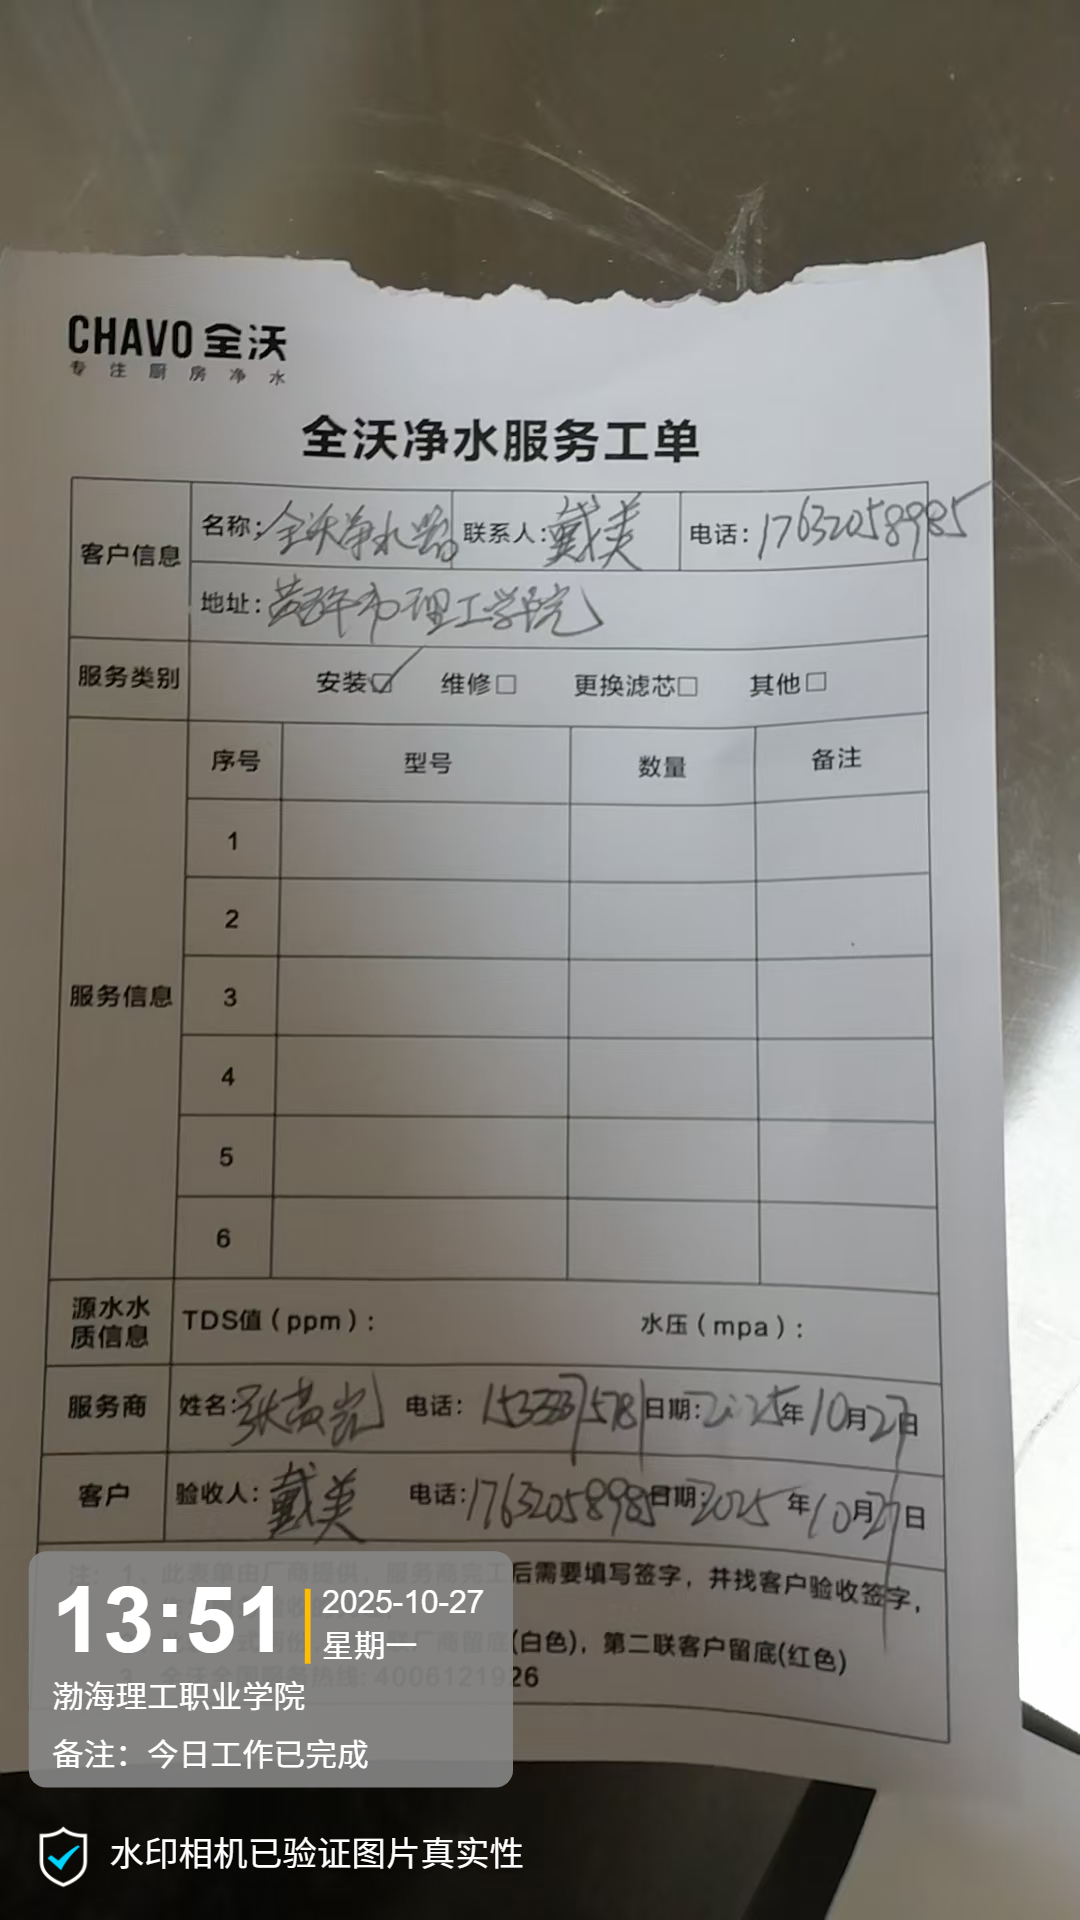 CHAVO 全沃
专注厨房净水
全沃净水服务工单
客户信息 名称: 全沃净水器 联系人: 戴美 电话: 17632058985
地址: 黄骅市理工学院
服务类别 安装☑ 维修□ 更换滤芯□ 其他□
服务信息 序号 型号 数量 备注
1
2
3
4
5
6
源水水质信息 TDS值（ppm）: 水压（mpa）:
服务商 姓名: 张 电话: 日期: 2025年10月27日
客户 验收人: 戴美 电话: 17632058985 日期: 2025年10月27日
注: 1、此表单由厂商提供，服务商完工后需要填写签字，并找客户验收签字，
厂商留底(白色)，第二联客户留底(红色)
3、全沃全国服务热线: 4006121926
13:51 2025-10-27
星期一
渤海理工职业学院
备注：今日工作已完成
水印相机已验证图片真实性